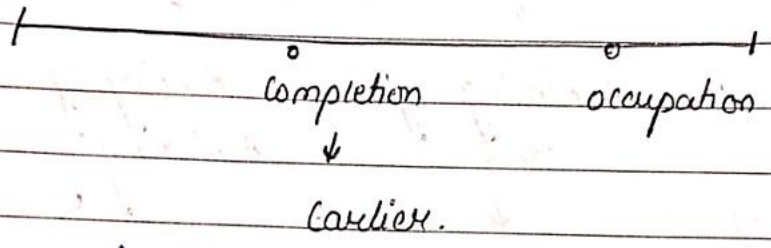 completion occupation
↓
Earlier.